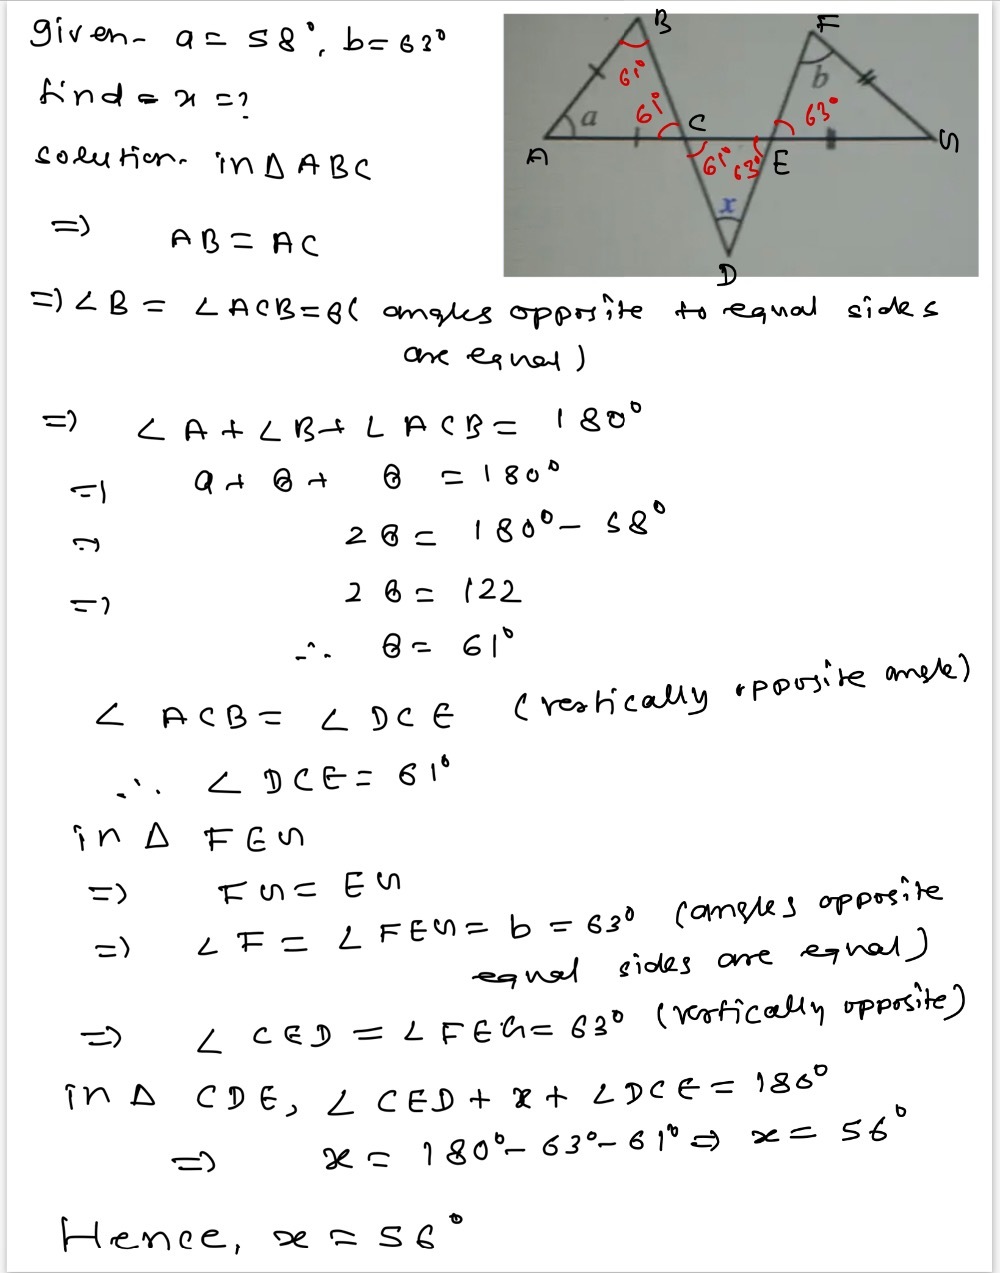 given- a = 58°, b = 63°
find - x = ?
solution- in Δ ABC
=> AB = AC
=> ∠B = ∠ACB = θ ( angles opposite to equal sides
are equal )
=> ∠A + ∠B + ∠ACB = 180°
=> a + θ + θ = 180°
=> 2θ = 180° - 58°
=> 2θ = 122
∴ θ = 61°
∠ ACB = ∠ DCE (vertically opposite angle)
∴ ∠ DCE = 61°
in Δ FES
=> FS = ES
=> ∠F = ∠FES = b = 63° (angles opposite
equal sides are equal)
=> ∠ CED = ∠ FES = 63° (vertically opposite)
in Δ CDE, ∠ CED + x + ∠DCE = 180°
=> x = 180° - 63° - 61° => x = 56°
Hence, x = 56°
B
F
61°
b
a
61°
C
63°
A
61°
63°
E
S
x
D